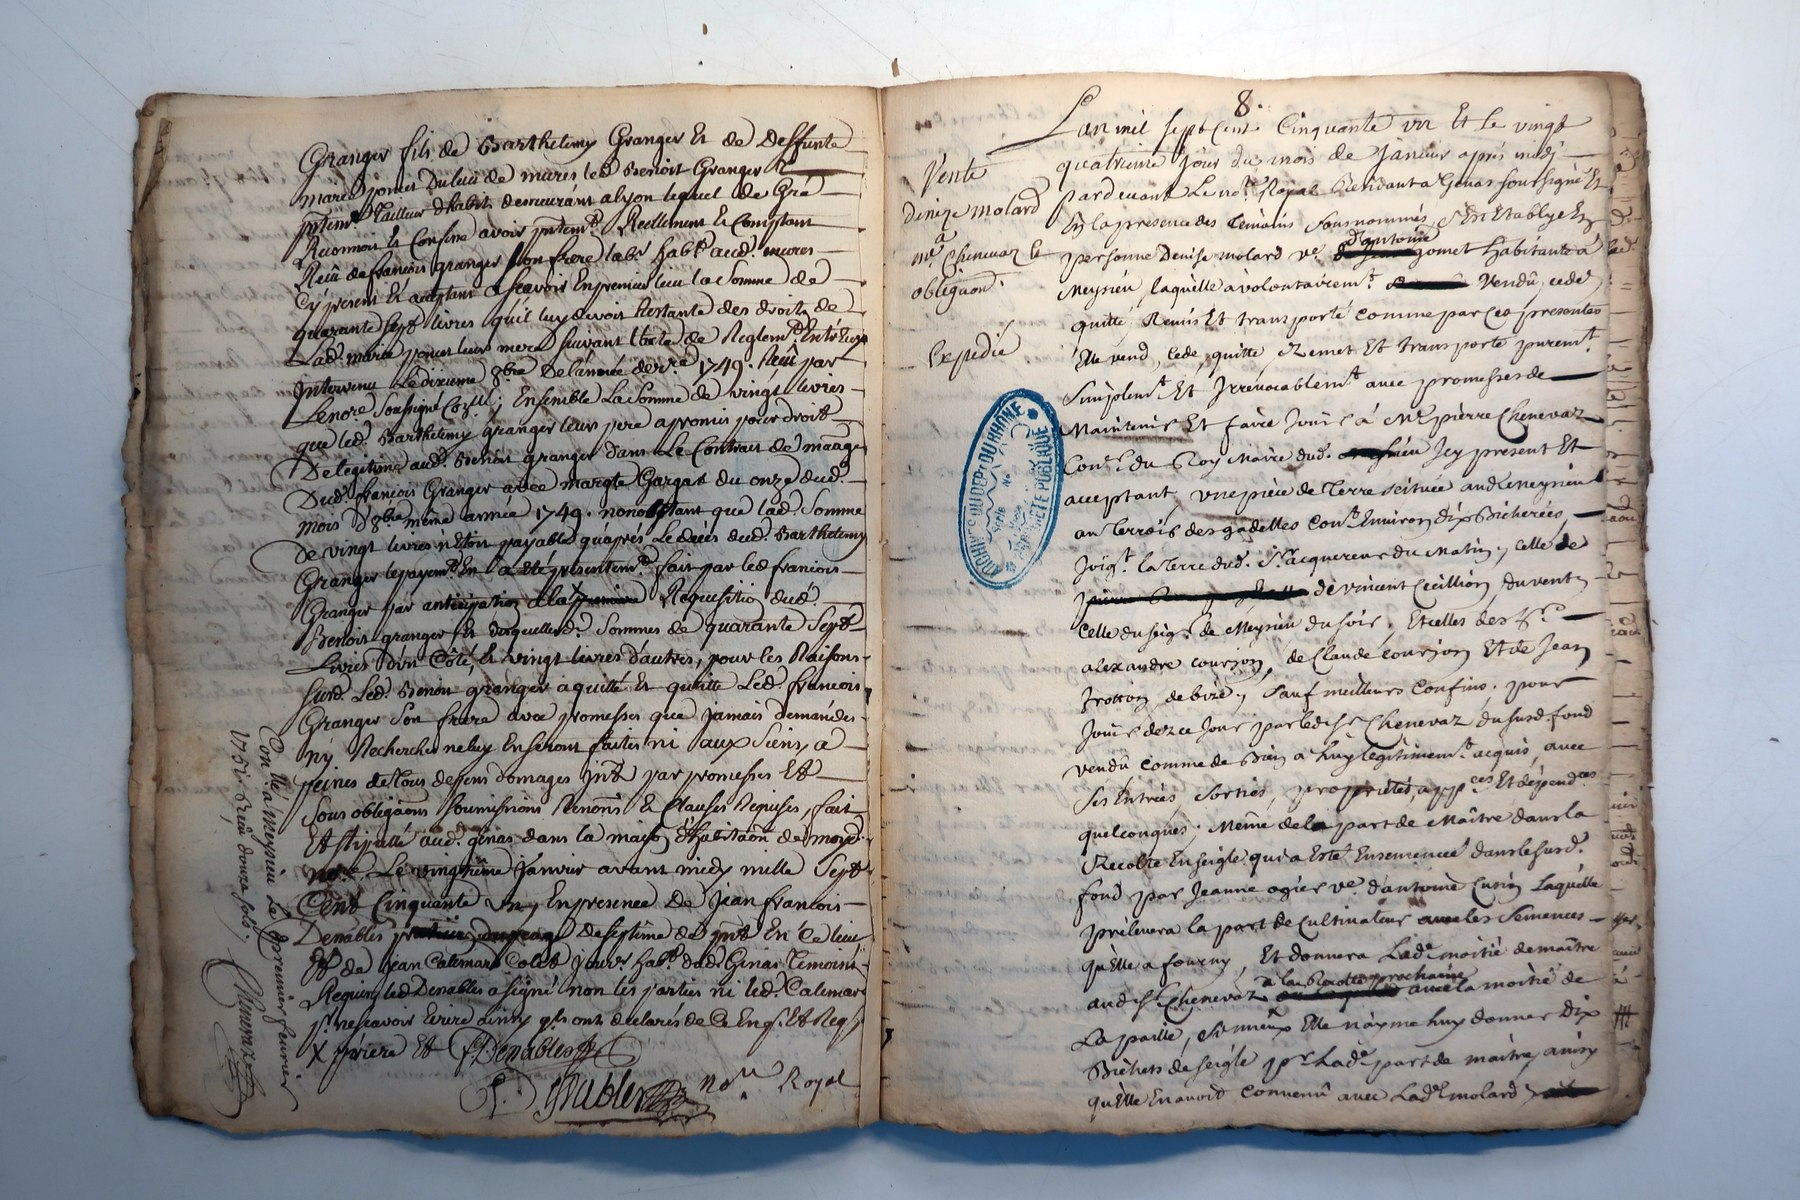 Granger fils de Barthelemy Granger Et de Deffunte
marie poncet Du lieu de mures led Benoist Granger
pntem.t Tailleur d'habit demeurant a lyon lequel de Gré
Reconnoit Et Confesse avoir pntem.t Reellement Et Comptant
Reçû de francois granger Son frere lab.r hab.t aud. mures
Cy present Et aceptant a Scavoir En premier lieu la Somme de
quarante Sept livres qu'il luy devoit Restante des droits de
Lad. marie poncet leur mere suivant l'acte de Reglem.t Entr'Eux
Intervenu Le dixieme 8bre De l'année der.re 1749. Reçû par
Le no.re Soussigné ; Ensemble La Somme de vingt livres
que led. Barthelemy granger leur pere a promis pour droit
De legitime aud. Benoist granger dans Le Contrat de mariage
Dud. francois Granger avec margte Gargat du onze dud.
mois D'8bre meme année 1749. nonobstant que lad. Somme
de vingt livres n'Etoit payable qu'aprés Le decés dud. Barthelemy
Granger le payem.t En a Eté presentem.t fait par led francois
Granger par anticipation a la Requisition dud.
Benoit granger Et desquelles d. Sommes de quarante Sept
Livres d'un Côté, Et vingt livres d'autres, pour les Raisons
Susd. Led. Benoit granger a quitté Et quitte Led. francois
Granger Son frere avec promesses que jamais demandes
ny Recherches ne luy En seront faites ni aux Siens a
peines de tous depens domages Int par promesses Et
Sous obligaons Soumissions Renon.s Et Clauses Requises, fait
Et Stipullé aud. genas dans la maison d'habitaon de moyd.
no.re Le vingtième Janvier avant midy mille Sept
Cent Cinquante un, En presence de Jean francois
Denables de Septême de pnt En Ce lieu
Et de Jean Calemard Colet jour.r hab.t dud. Genas Temoins
Requis, led Denables a signé non les parties ni led. Calemard
p.r ne scavoir Ecrire ainsy qils ont declarés de Ce Enq.s Et Req.s
X priere Et Denables
no.re Royal
Con.llé a Meyzieu Le premier feurier
1751. Reçû douze sols.
Chenevaz
8.
L'an mil Sept Cent Cinquante un Et Le vingt
quatrieme Jour du mois de Janvier aprés midj
Vente
Denize molard
a
m.e Chenevaz Et
obligaon.
Expedié
pardevant Le no.re Royal Residant a Genas soussigné Et
En la presence des temoins Sousnommés S'Est Etablye En
d'antoine
personne Denise molard v.e gonet habitante à
Meysieu, laquelle a volontairem.t Vendû, cedé
quitté Remis Et transporté comme par ces presentes
Elle vend, cede, quitte, Remet Et transporte purem.t
Simplem.t Et Irrevocablem.t avec promesses de
Maintenir Et faire Jouir à M.e pierre Chenevaz
Con.er du Roy Maire dud. Meysieu Icy present Et
acceptant, une piéce de Terre scituée aud Meysieu
au Terroir des gadelles con.t Environ dix Bicherées,
Joig.t la Terre dud. S.r acquereur du Matin ; celle de
de vincent Ceillion, du vent,
Celle du seig.r de Meysieu du soir, Et celles des S.r
alexandre courjon, de Claude courjon Et de Jean
Trossion, de bize ; Sauf meilleurs Confins, pour
Jouir dez ce Jour par led S.r Chenevaz du susd. fond
vendû comme de Bien a luy legitimem.t acquis, avec
Ses Entrées, Sorties, proprietés, app.ces Et depend.ces
quelconques ; Même de la part de Maître dans la
Recolte En seigle qui a Esté Ensemencée dans le susd.
fond par Jeanne ogier v.e d'antoine Cusin Laquélle
prélevera la part de Cultivateur avec les Semences
qu'Elle a fourny, Et donnera Lad.e moitié de maître
a la Recolte prochaine
aud S.r Chenevaz avec la moitié de
La paille, Si mieux Elle n'ayme luy donner dix
Bichets de seigle p.r Lad.e part de maitre, ainsy
qu'Elle En avoit Convenû avec Lad.e molard,
ARCHIVES DU DEPT DU RHONE